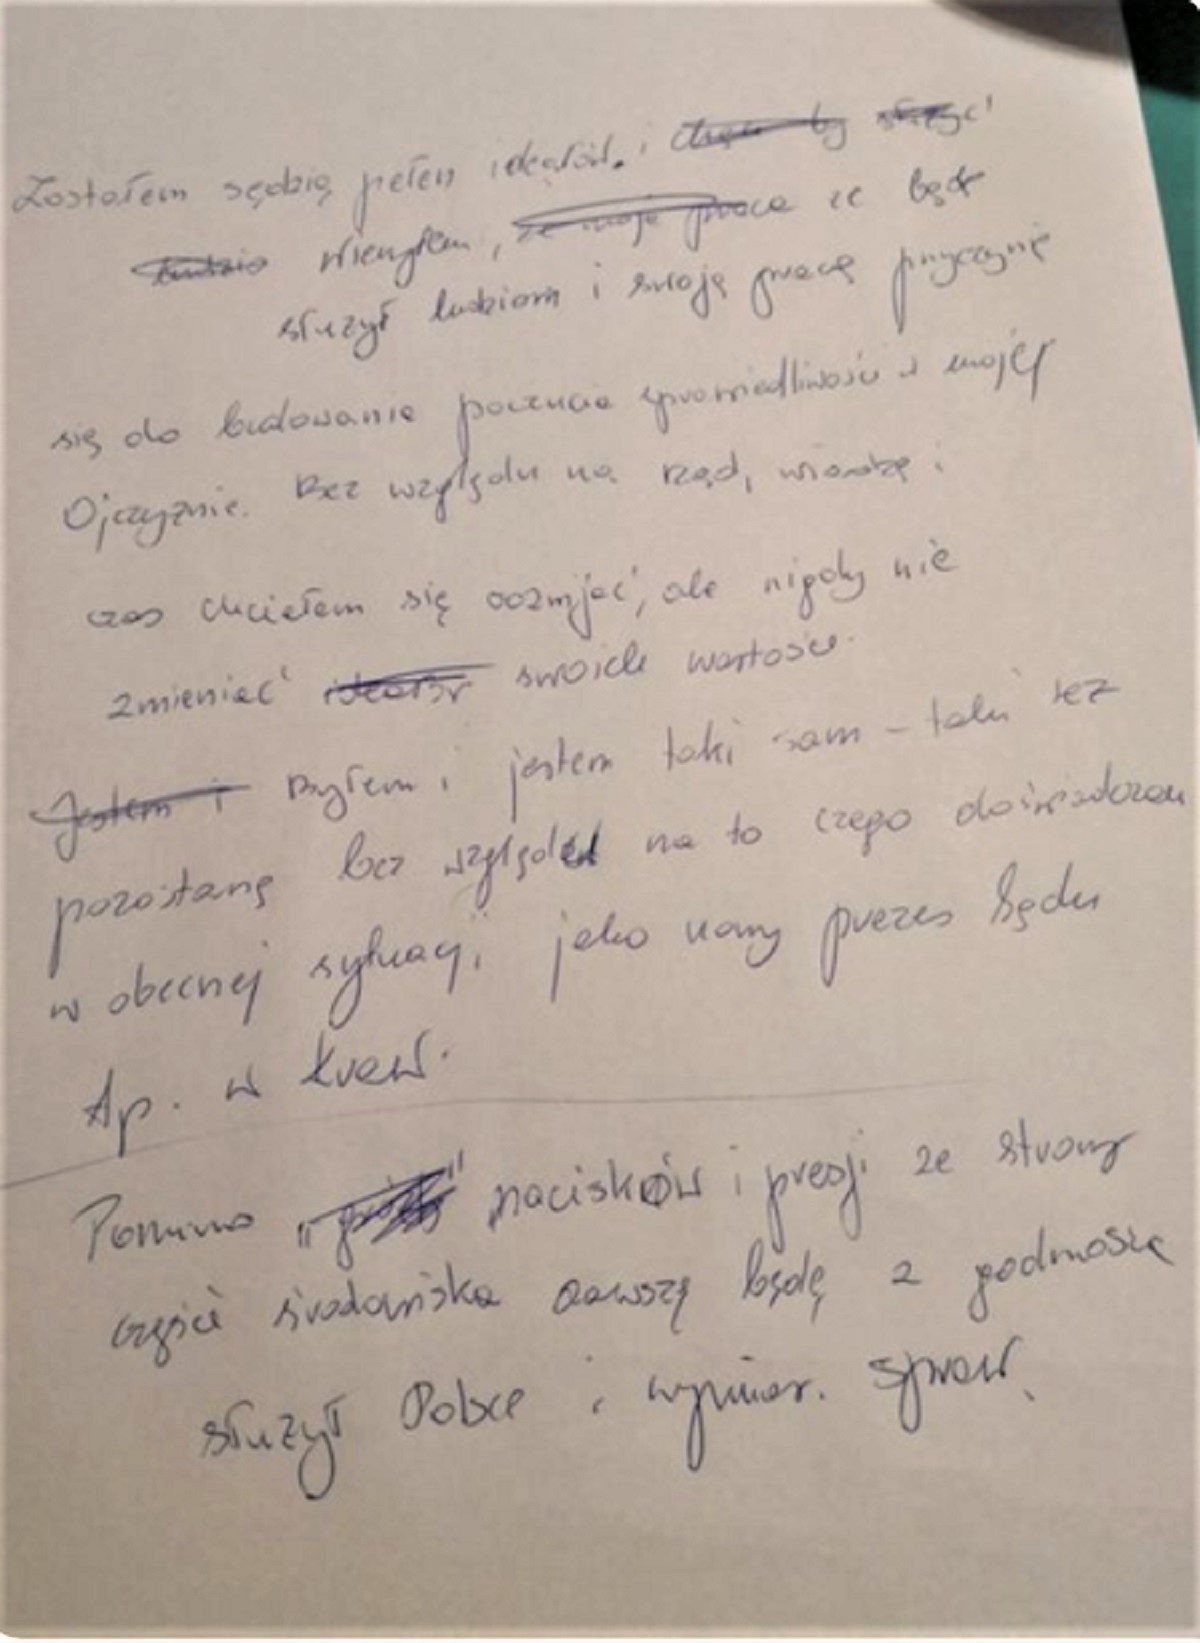 Zostałem sędzią pełen ideałów. i służyć
ludzio wierzyłem, że moja praca że będę
służył ludziom i swoją pracą przyczynię
się do budowania poczucia sprawiedliwości w mojej
Ojczyźnie. Bez względu na rząd, i
czas chciałem się rozwijać, ale nigdy nie
zmieniać ideałów swoich wartości.
Jestem i Byłem i jestem taki sam – taki też
pozostanę bez względu na to czego doświadczam
w obecnej sytuacji jako nowy prezes Sądu
Ap. w Krak.
Pomimo „ " nacisków i presji ze strony
części środowiska zawsze będę z godnością
służył Polsce i wymiar. spraw.